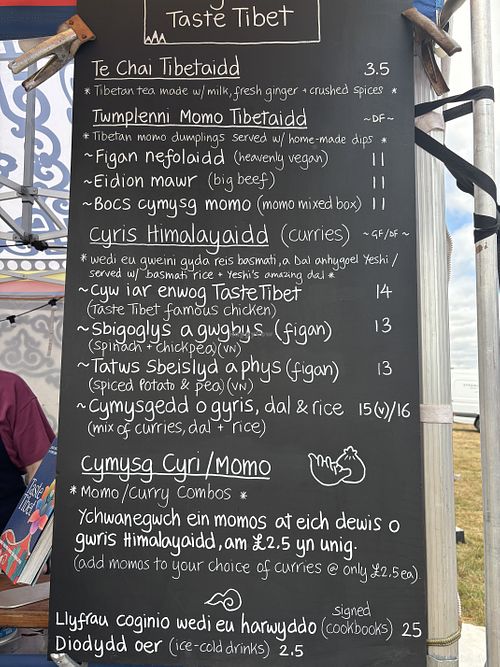 Taste Tibet
Te Chai Tibetaidd 3.5
* Tibetan tea made w/ milk, fresh ginger + crushed spices *
Twmplenni Momo Tibetaidd ~DF~
* Tibetan momo dumplings served w/ home-made dips *
~Figan nefolaidd (heavenly vegan) 11
~Eidion mawr (big beef) 11
~Bocs cymysg momo (momo mixed box) 11
Cyris Himalayaidd (curries) ~GF/DF~
* wedi eu gweini gyda reis basmati, a Dal anhygoel Yeshi /
served w/ basmati rice + Yeshi's amazing dal *
~Cyw iar enwog Taste Tibet 14
(Taste Tibet famous chicken)
~Sbigoglys a gwgbys (figan) 13
(spinach + chickpea) (VN)
~Tatws Sbeislyd a phys (figan) 13
(spiced potato & pea) (VN)
~Cymysgedd o gyris, dal & rice 15(v)/16
(mix of curries, dal + rice)
Cymysg Cyri/Momo
* Momo/Curry Combos *
Ychwanegwch ein momos at eich dewis o
gwris Himalayaidd, am £2.5 yn unig.
(add momos to your choice of curries @ only £2.5ea)
Llyfrau coginio wedi eu harwyddo (signed cookbooks) 25
Diodydd oer (ice-cold drinks) 2.5
Taste Tibet